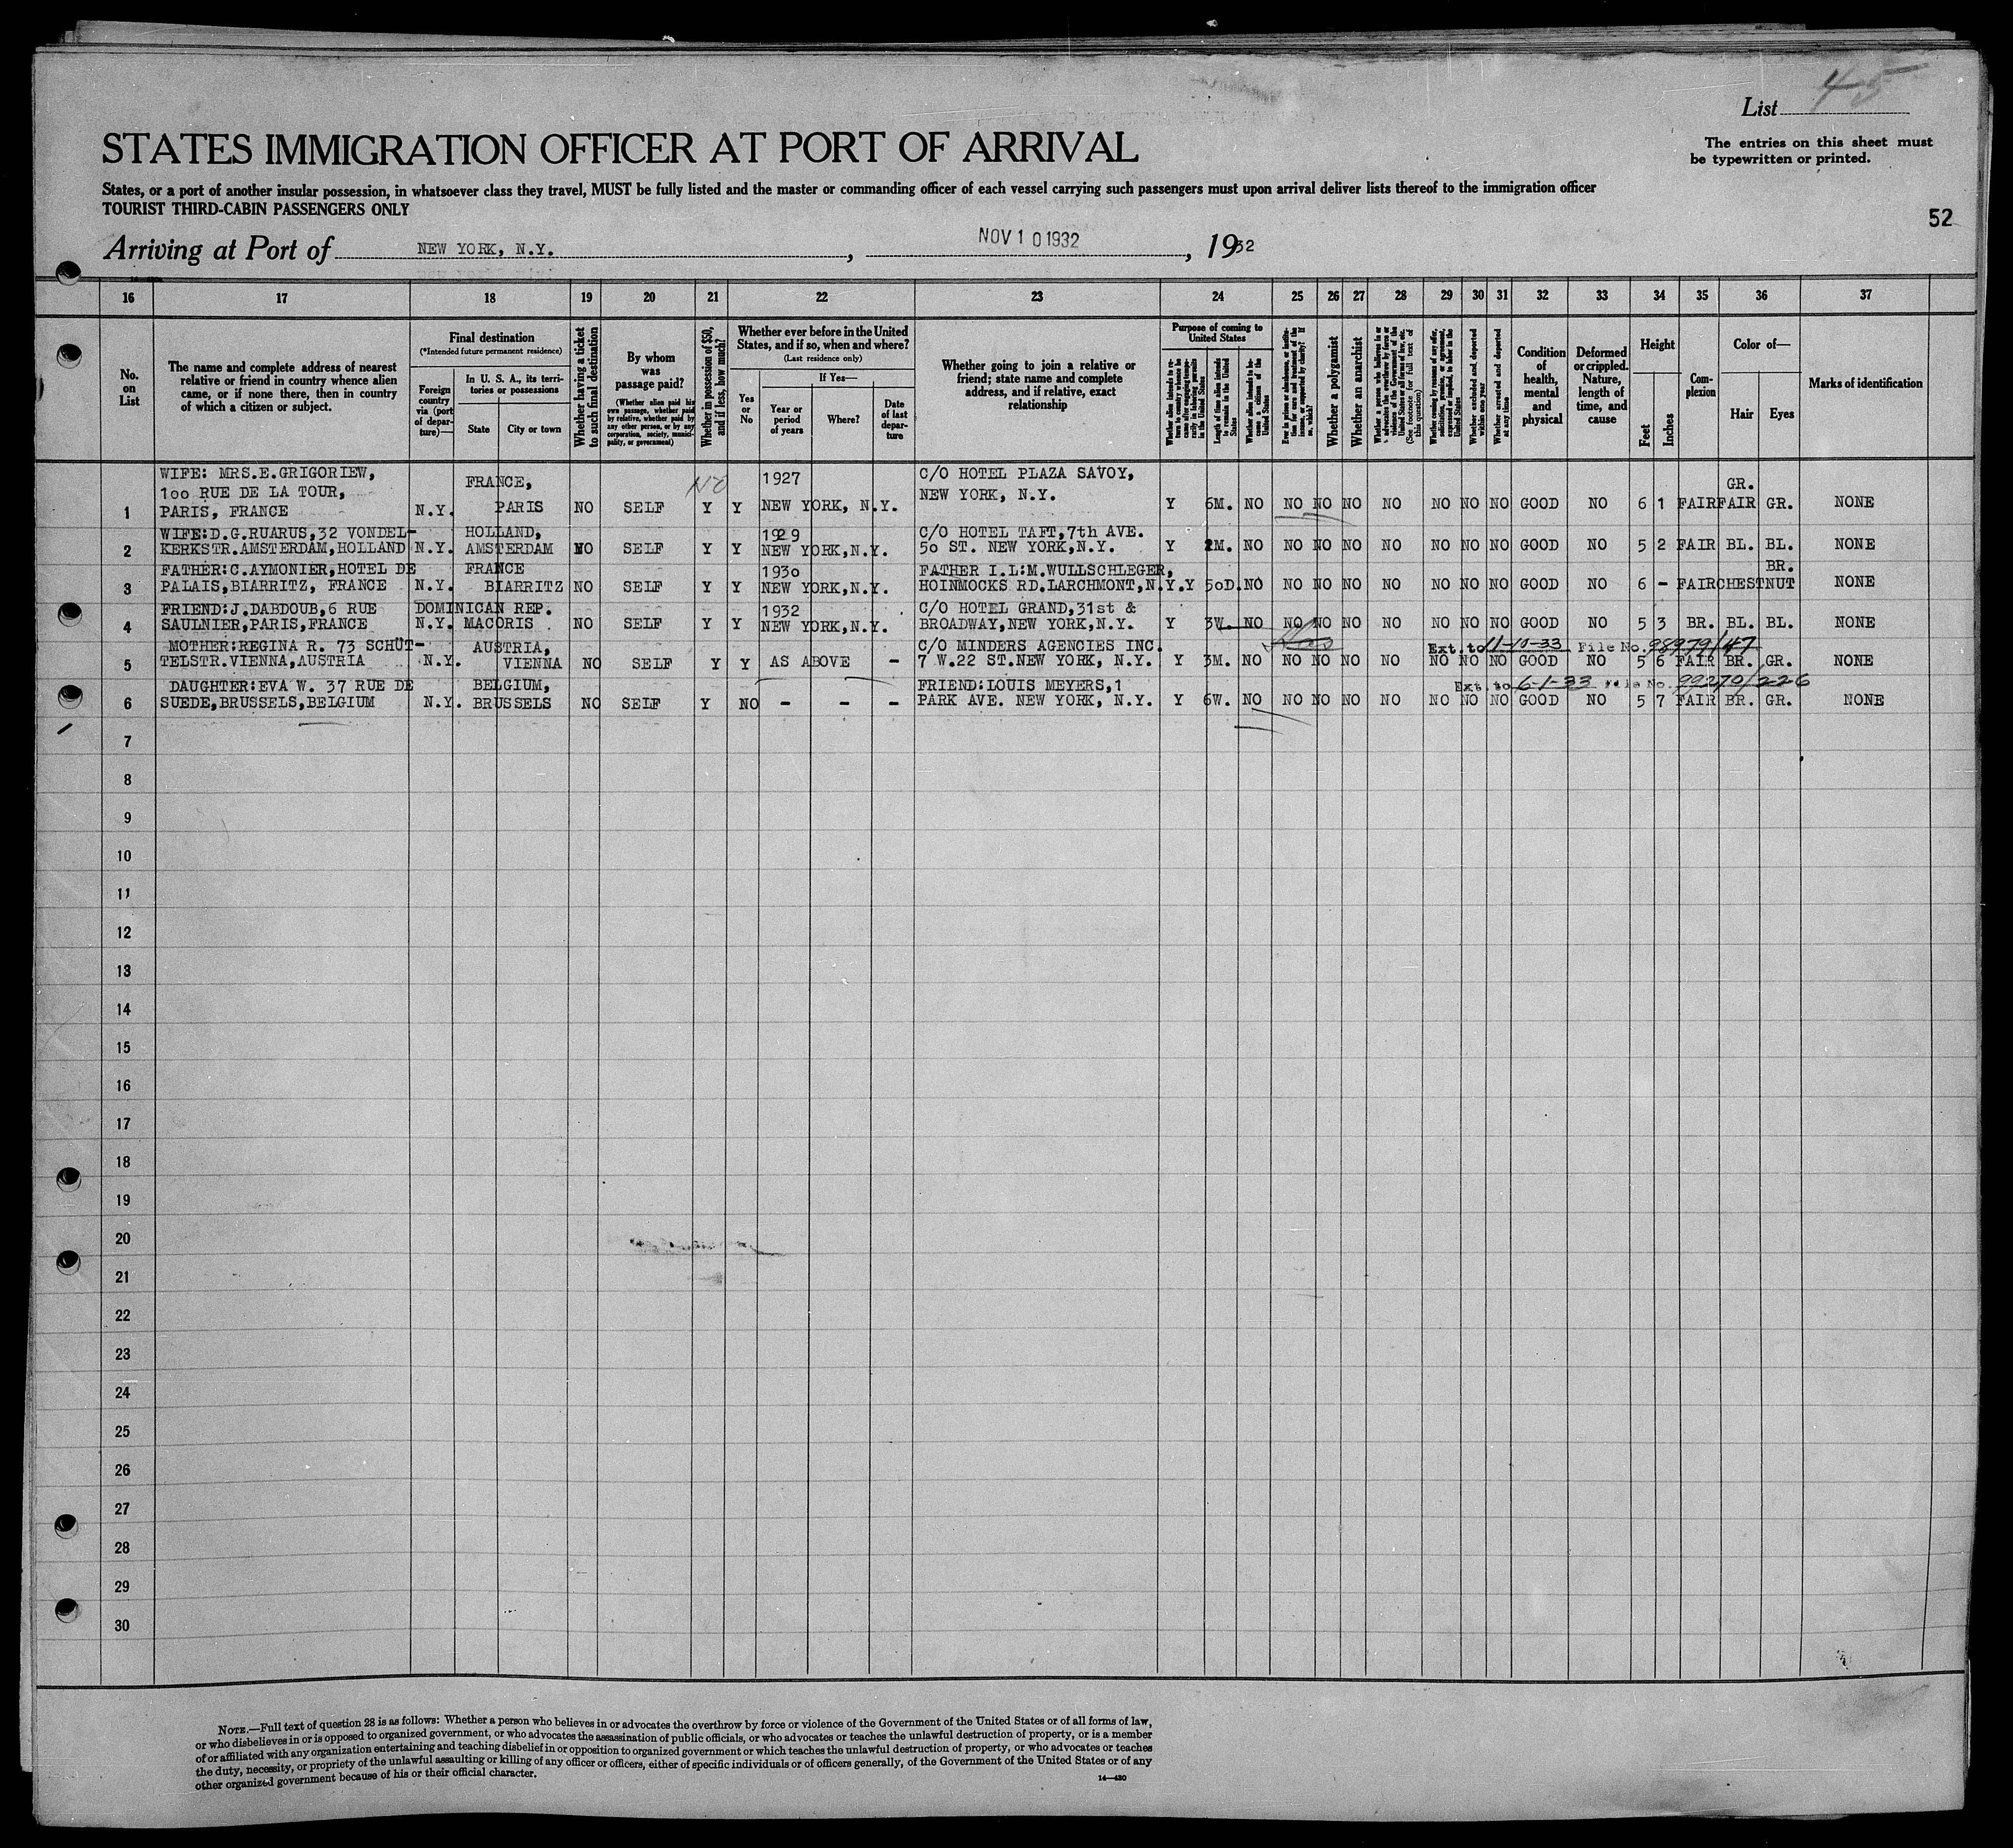 List 45
STATES IMMIGRATION OFFICER AT PORT OF ARRIVAL
The entries on this sheet must
be typewritten or printed.
States, or a port of another insular possession, in whatsoever class they travel, MUST be fully listed and the master or commanding officer of each vessel carrying such passengers must upon arrival deliver lists thereof to the immigration officer
TOURIST THIRD-CABIN PASSENGERS ONLY
52
Arriving at Port of NEW YORK, N.Y. , NOV 10 1932 , 1932
16 17 18 19 20 21 22 23 24 25 26 27 28 29 30 31 32 33 34 35 36 37
No.
on
List
The name and complete address of nearest
relative or friend in country whence alien
came, or if none there, then in country
of which a citizen or subject.
Final destination
(*Intended future permanent residence)
Foreign
country
via (port
of depar-
ture)—
In U. S. A., its terri-
tories or possessions
State
City or town
Whether having a ticket
to such final destination
By whom
was
passage paid?
(Whether alien paid his
own passage, whether paid
by relative, whether paid by
any other person, or by any
corporation, society, munici-
pality, or government)
Whether in possession of $50,
and if less, how much?
Whether ever before in the United
States, and if so, when and where?
(Last residence only)
Yes
or
No
If Yes—
Year or
period
of years
Where?
Date
of last
depar-
ture
Whether going to join a relative or
friend; state name and complete
address, and if relative, exact
relationship
Purpose of coming to
United States
Whether alien intends to re-
turn to country whence he
came after engaging tempo-
rarily in laboring pursuits
in the United States
Length of time alien intends
to remain in the United
States
Whether alien intends to be-
come a citizen of the
United States
Ever in prison or almshouse, or institu-
tion for care and treatment of the
insane, or supported by charity? If
so, which?
Whether a polygamist
Whether an anarchist
Whether a person who believes in or
advocates the overthrow by force or
violence of the Government of the
United States or all forms of law, etc.
(See footnote for full text of
this question)
Whether coming by reason of any offer,
solicitation, promise, or agreement,
expressed or implied, to labor in the
United States
Whether excluded and deported
within one year
Whether arrested and deported
at any time
Condition
of
health,
mental
and
physical
Deformed
or crippled.
Nature,
length of
time, and
cause
Height
Feet
Inches
Com-
plexion
Color of—
Hair
Eyes
Marks of identification
WIFE: MRS.E.GRIGORIEW, FRANCE, NO 1927 C/O HOTEL PLAZA SAVOY,
100 RUE DE LA TOUR, NEW YORK, N.Y. GR.
1 PARIS, FRANCE N.Y. PARIS NO SELF Y Y NEW YORK, N.Y. Y 6M. NO NO NO NO NO NO NO NO GOOD NO 6 1 FAIR FAIR GR. NONE
WIFE:D.G.RUARUS,32 VONDEL- HOLLAND, 1929 C/O HOTEL TAFT,7th AVE.
2 KERKSTR.AMSTERDAM,HOLLAND N.Y. AMSTERDAM NO SELF Y Y NEW YORK,N.Y. 50 ST. NEW YORK,N.Y. Y 2M. NO NO NO NO NO NO NO NO GOOD NO 5 2 FAIR BL. BL. NONE
FATHER:C.AYMONIER,HOTEL DE FRANCE 1930 FATHER I.L:M.WULLSCHLEGER, BR.
3 PALAIS,BIARRITZ, FRANCE N.Y. BIARRITZ NO SELF Y Y NEW YORK,N.Y. HOINMOCKS RD.LARCHMONT,N.Y. Y 50D. NO NO NO NO NO NO NO NO GOOD NO 6 - FAIR CHESTNUT NONE
FRIEND:J.DABDOUB,6 RUE DOMINICAN REP. 1932 C/O HOTEL GRAND,31st &
4 SAULNIER,PARIS,FRANCE N.Y. MACORIS NO SELF Y Y NEW YORK,N.Y. BROADWAY,NEW YORK,N.Y. Y 3W. NO NO NO NO NO NO NO NO GOOD NO 5 3 BR. BL. BL. NONE
MOTHER:REGINA R. 73 SCHÜT- AUSTRIA, C/O MINDERS AGENCIES INC. Ext. to 11-10-33 File No. 98979/47
5 TELSTR.VIENNA,AUSTRIA N.Y. VIENNA NO SELF Y Y AS ABOVE - 7 W.22 ST.NEW YORK, N.Y. Y 3M. NO NO NO NO NO NO NO NO GOOD NO 5 6 FAIR BR. GR. NONE
DAUGHTER:EVA W. 37 RUE DE BELGIUM, FRIEND:LOUIS MEYERS,1 Ext. to 6-1-33 File No. 99270/226
6 SUEDE,BRUSSELS,BELGIUM N.Y. BRUSSELS NO SELF Y NO - - - PARK AVE. NEW YORK, N.Y. Y 6W. NO NO NO NO NO NO NO NO GOOD NO 5 7 FAIR BR. GR. NONE
7
8
9
10
11
12
13
14
15
16
17
18
19
20
21
22
23
24
25
26
27
28
29
30
NOTE.—Full text of question 28 is as follows: Whether a person who believes in or advocates the overthrow by force or violence of the Government of the United States or of all forms of law,
or who disbelieves in or is opposed to organized government, or who advocates the assassination of public officials, or who advocates or teaches the unlawful destruction of property, or is a member
of or affiliated with any organization entertaining and teaching disbelief in or opposition to organized government or which teaches the unlawful destruction of property, or who advocates or teaches
the duty, necessity, or propriety of the unlawful assaulting or killing of any officer or officers, either of specific individuals or of officers generally, of the Government of the United States or of any
other organized government because of his or their official character.
14—430